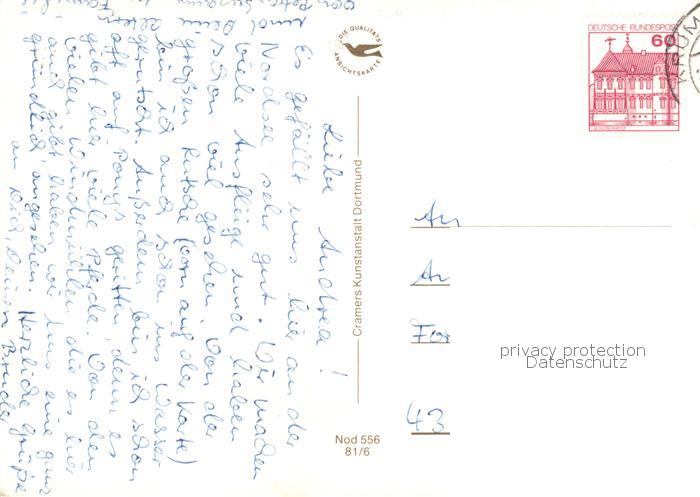 Liebe Andrea!
Es gefällt uns hier an der
Nordsee sehr gut. Wir machen
viele Ausflüge und haben
schon viel gesehen. Von der
großen Rutsche (vorn auf der Karte)
bin ich auch schon ins Wasser
gerutscht. Außerdem bin ich schon
oft auf Ponys geritten, denn es
gibt hier viele Pferde. Von den
vielen Windmühlen die es hier
auch gibt haben wir uns eine ganz
gründlich angesehen. Herzliche Grüße
an Dich, Deinen Bruder
und Deine
Familie
DIE QUALITÄTS
ANSICHTSKARTE
Cramers Kunstanstalt Dortmund
Nod 556
81/6
DEUTSCHE BUNDESPOST
60
An
43
privacy protection
Datenschutz